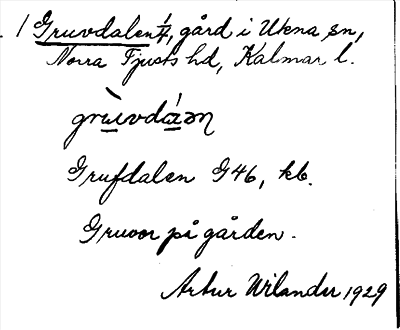 Gruvdalen, gård i Ukna sn,
Norra Tjusts hd, Kalmar l.
Grufdalen G46, kb.
Gruvor på gården.
Artur Wilander 1929